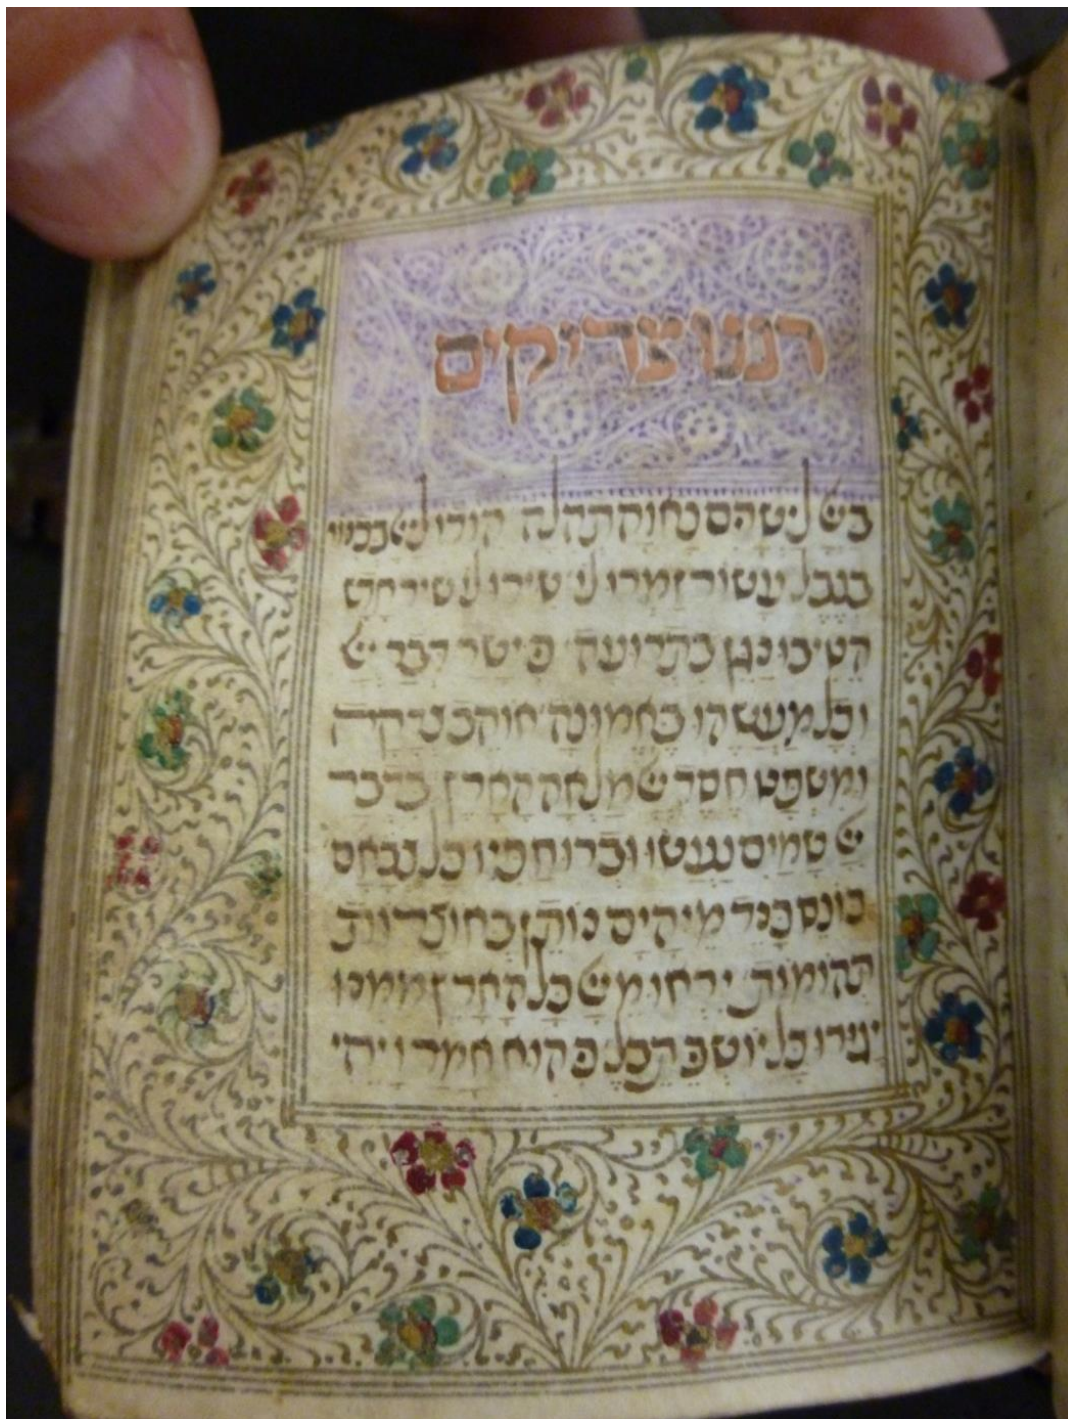 רננו צדיקים
ביי לישרים נאוה תהלה הודו ליי בכנור
בנבל עשור זמרו לו שירו לו שיר חדש
הטיבו נגן בתרועה כי ישר דבר יי
וכל מעשהו באמונה אוהב צדקה
ומשפט חסד יי מלאה הארץ בדבר
יי שמים נעשו וברוח פיו כל צבאם
כונס כנד מי הים נותן באוצרות
תהומות יראו מיי כל הארץ ממנו
יגורו כל יושבי תבל כי הוא אמר ויהי